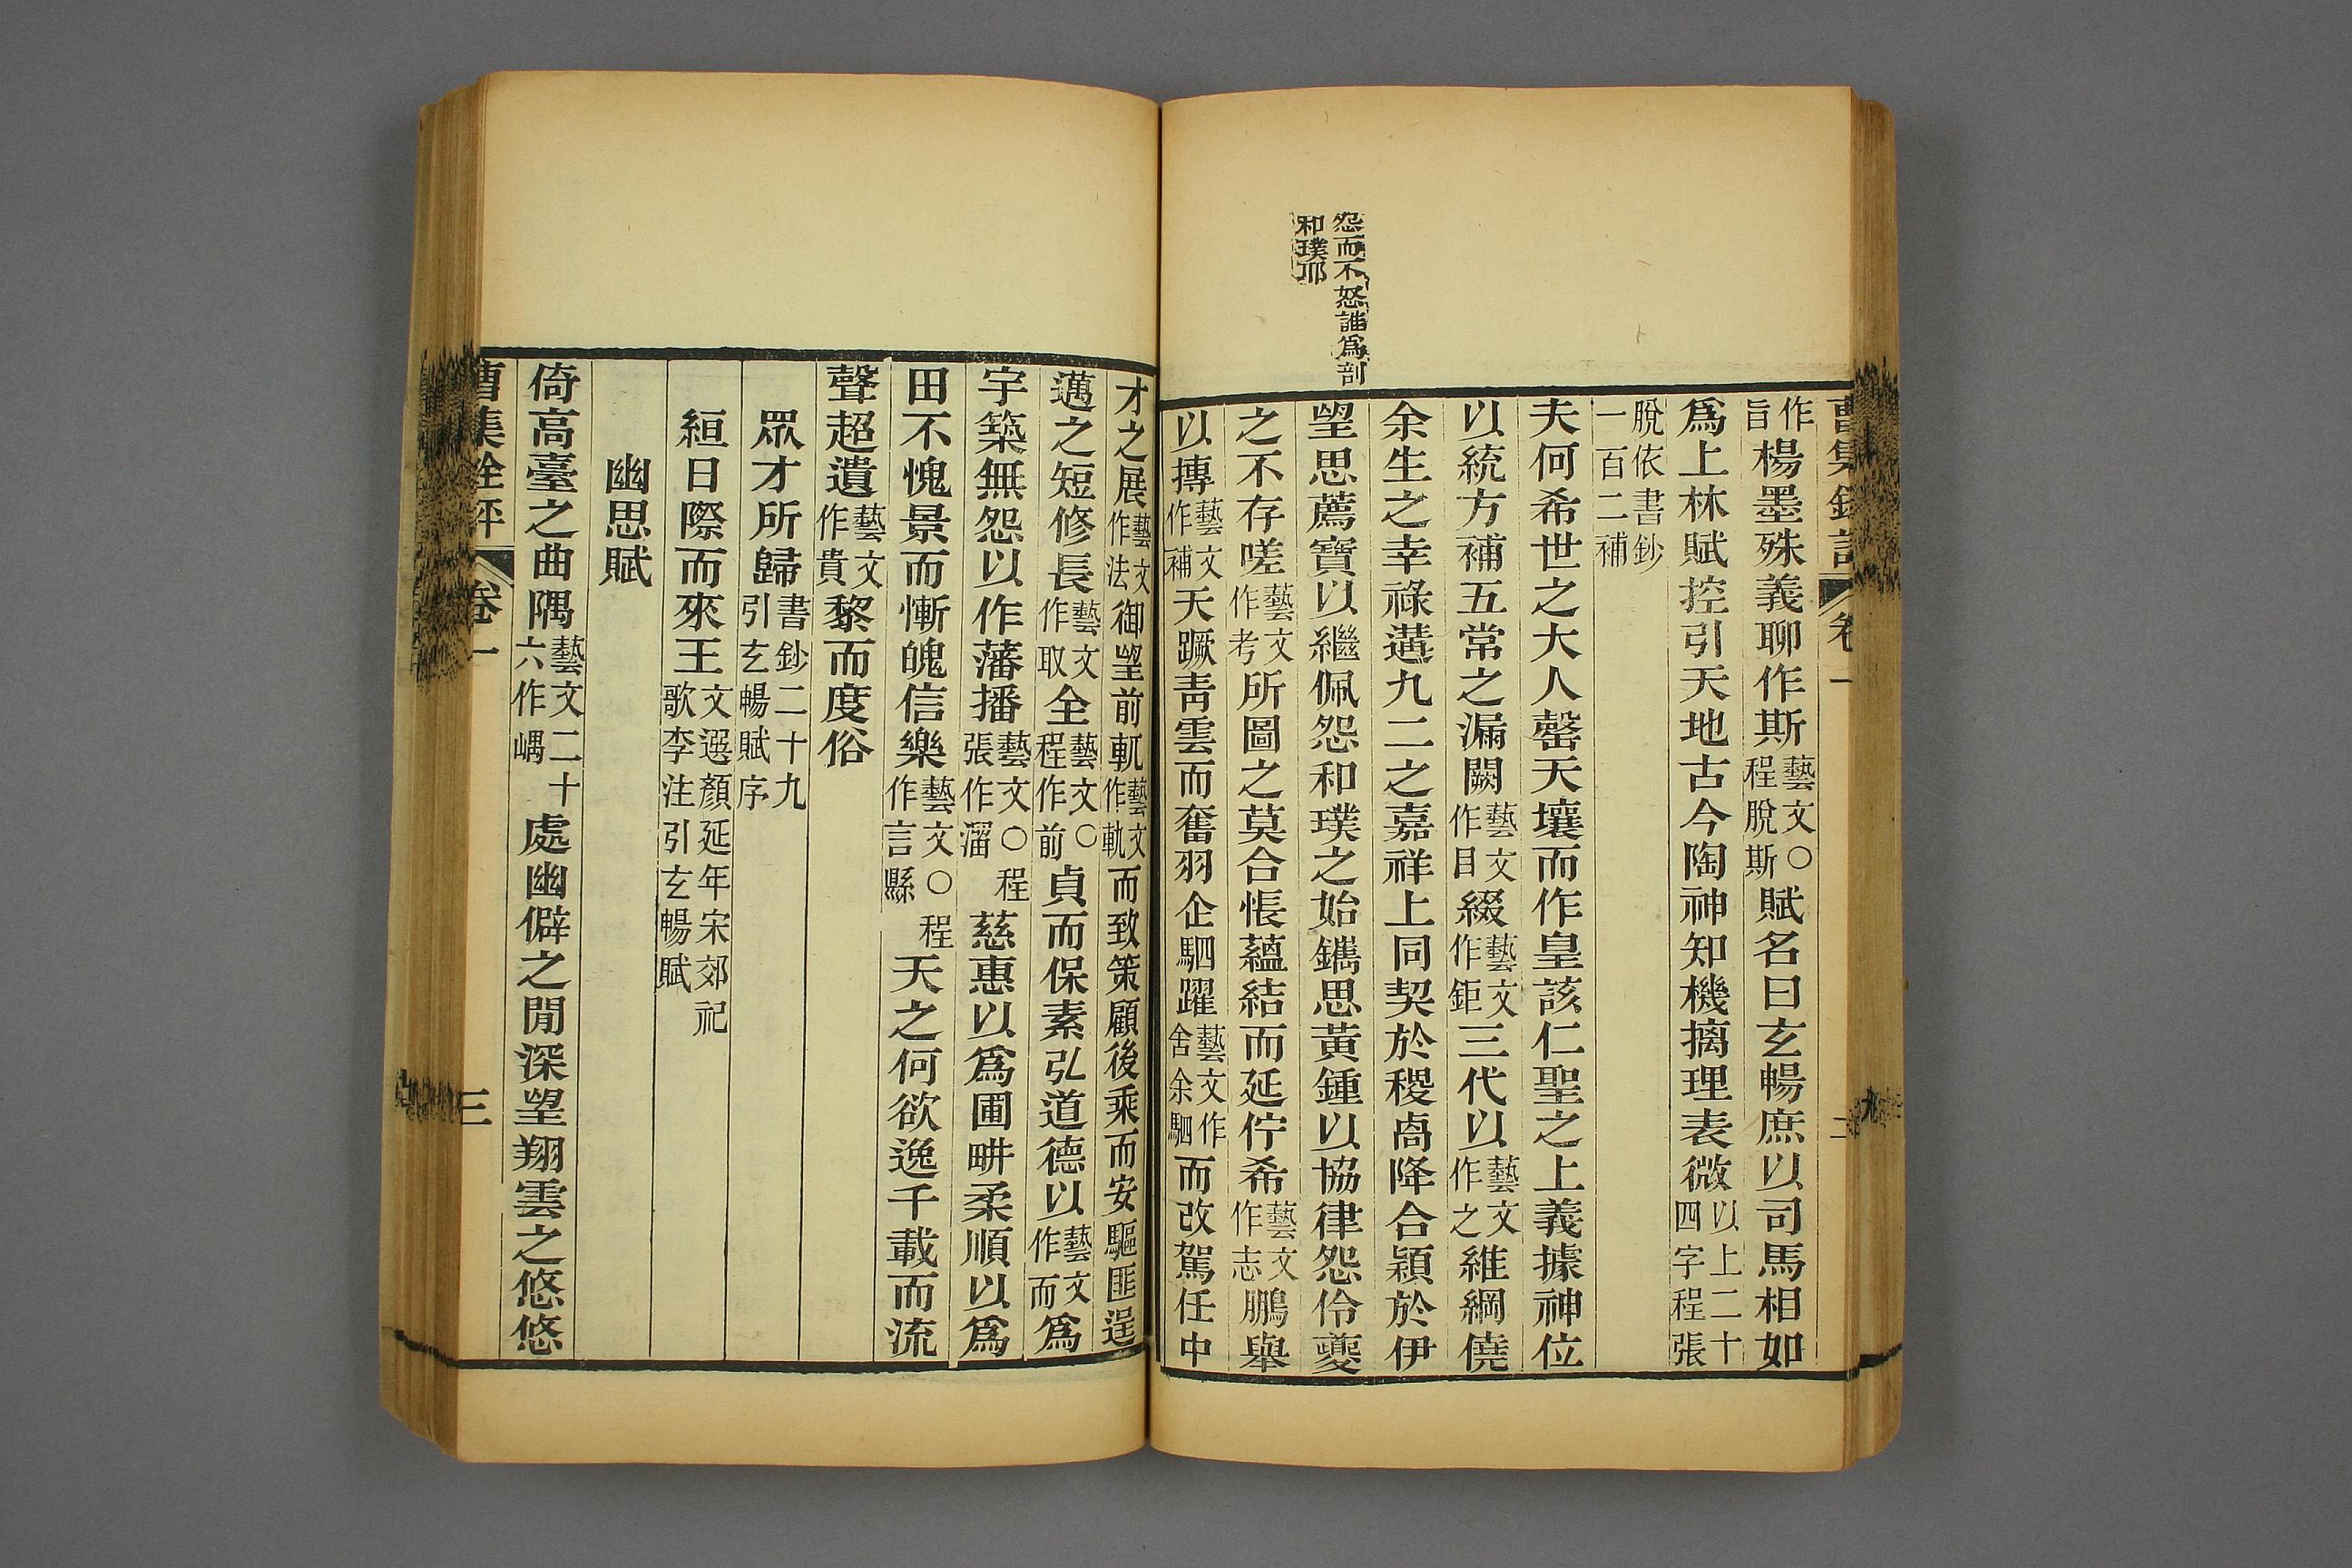 怨而不怒誰爲剖
和璞邪
曹集銓評 卷一 二
作旨楊墨殊義聊作斯藝文○程脫斯賦名曰玄暢庶以司馬相如
爲上林賦控引天地古今陶神知機摛理表微以上二十四字程張
脫依書鈔一百二補
夫何希世之大人罄天壤而作皇該仁聖之上義據神位
以統方補五常之漏闕藝文作目綴藝文作鉅三代以藝文作之維綱僥
余生之幸祿遘九二之嘉祥上同契於稷卨降合穎於伊
朢思薦寶以繼佩怨和璞之始鐫思黃鍾以協律怨伶夔
之不存嗟藝文作考所圖之莫合悵蘊結而延佇希藝文作志鵬舉
以摶藝文作補天蹶靑雲而奮羽企駟躍藝文作舍余駟而改駕任中
才之展藝文作法御朢前軏藝文作軌而致策顧後乘而安驅匪逞
邁之短修長藝文作取全藝文○程作前貞而保素弘道德以藝文作而爲
宇築無怨以作藩播藝文○程張作濯慈惠以爲圃耕柔順以爲
田不愧景而慚魄信樂藝文○程作言縣天之何欲逸千載而流
聲超遺藝文作貴黎而度俗
眾才所歸書鈔二十九引玄暢賦序
絙日際而來王文選顏延年宋郊祀歌李注引玄暢賦
幽思賦
倚高臺之曲隅藝文二十六作嵎處幽僻之閒深朢翔雲之悠悠
曹集銓評 卷一 三